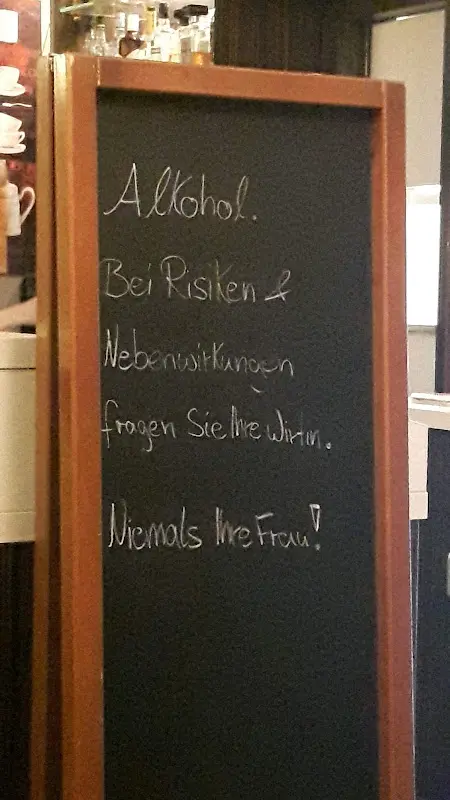 Alkohol.
Bei Risiken &
Nebenwirkungen
fragen Sie Ihre Wirtin.
Niemals Ihre Frau!